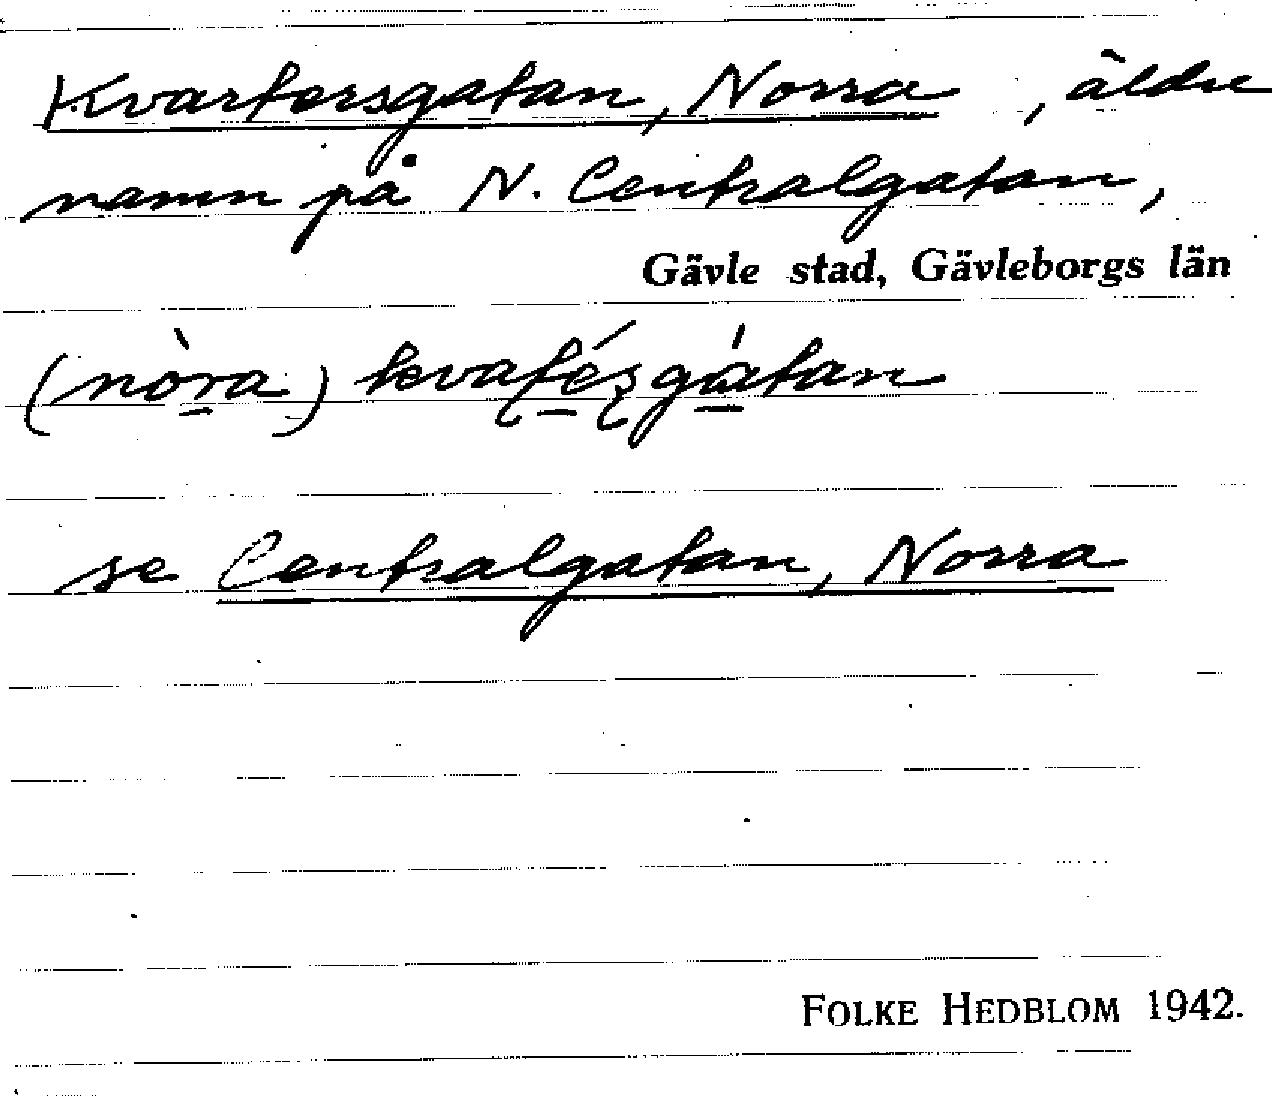 Kvartersgatan, Norra, äldre
namn på N. Centralgatan,
Gävle stad, Gävleborgs län
(nòra) kvaʈéʂgátan
se Centralgatan, Norra
FOLKE HEDBLOM 1942.